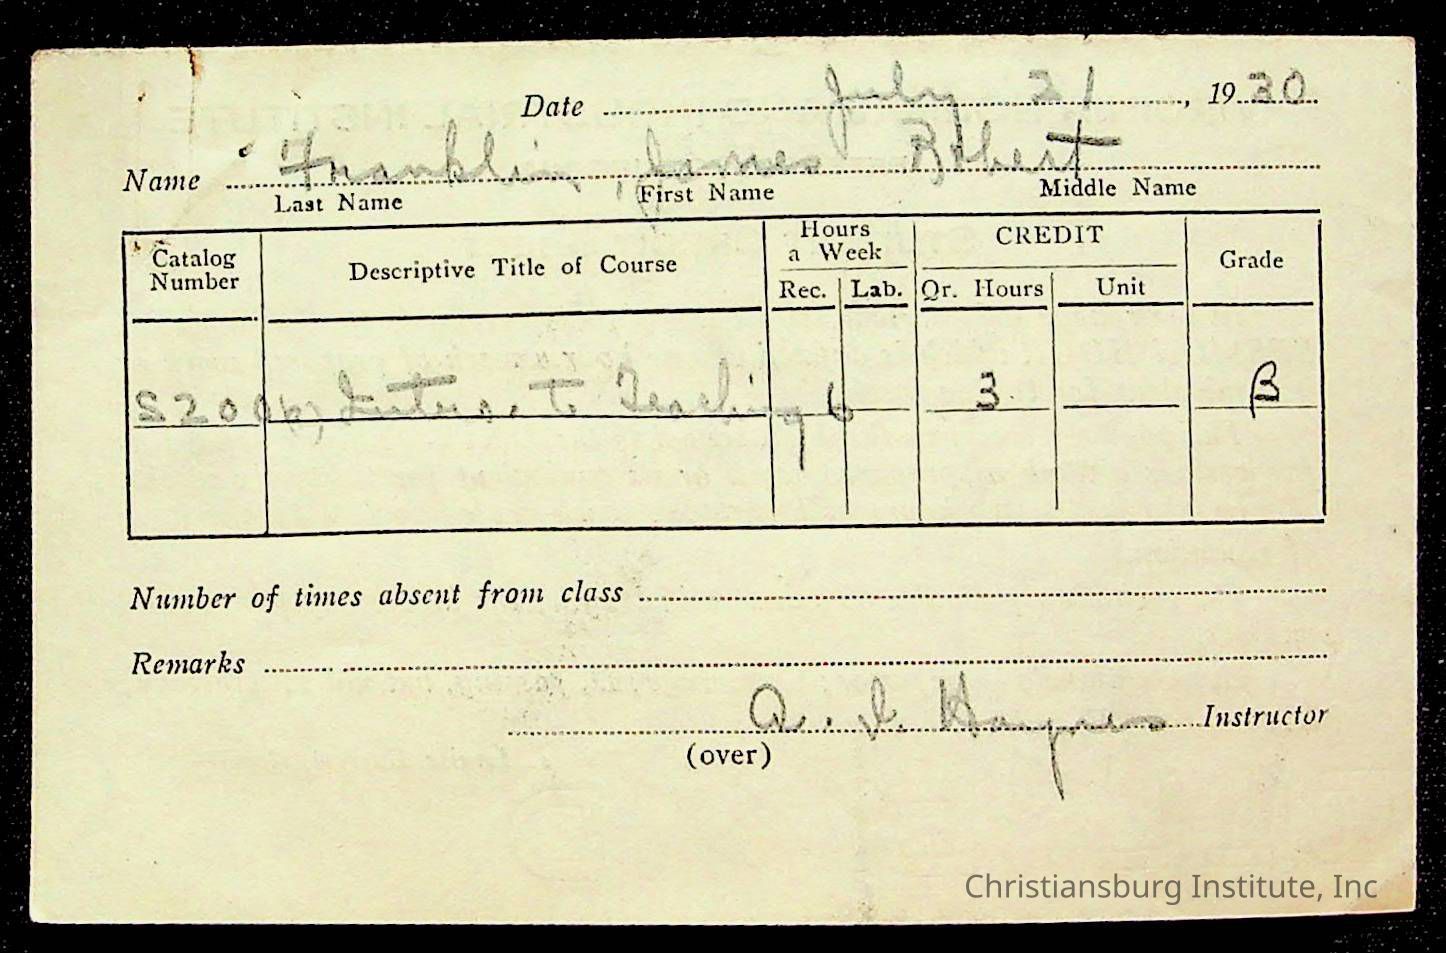 Date July 31, 1930
Name Franklin, James Robert
Last Name First Name Middle Name
Catalog Number Descriptive Title of Course Hours a Week Rec. Lab. CREDIT Qr. Hours Unit Grade
S200b, Introd. to Teaching 6 3 B
Number of times absent from class
Remarks
A. I. Haynes Instructor
(over)
Christiansburg Institute, Inc